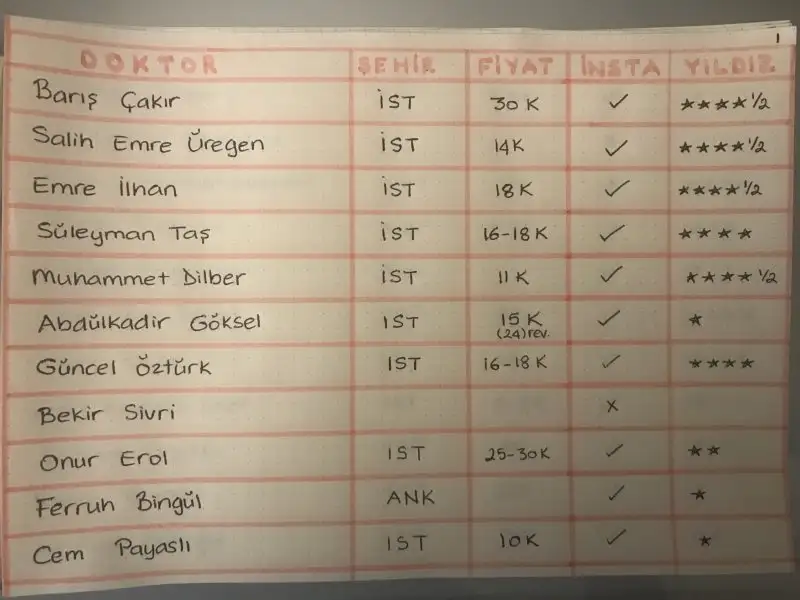 1
DOKTOR ŞEHİR FİYAT İNSTA YILDIZ
Barış Çakır İST 30 K ✓ ★★★★ 1/2
Salih Emre Üregen İST 14K ✓ ★★★★ 1/2
Emre İlhan İST 18 K ✓ ★★★★ 1/2
Süleyman Taş İST 16-18 K ✓ ★★★★
Muhammet Dilber İST 11 K ✓ ★★★★ 1/2
Abdülkadir Göksel IST 15 K ✓ ★
(24) rev.
Güncel Öztürk IST 16-18 K ✓ ★★★★
Bekir Sivri x
Onur Erol IST 25-30K ✓ ★★
Ferruh Bingül ANK ✓ ★
Cem Payaslı IST 10K ✓ ★